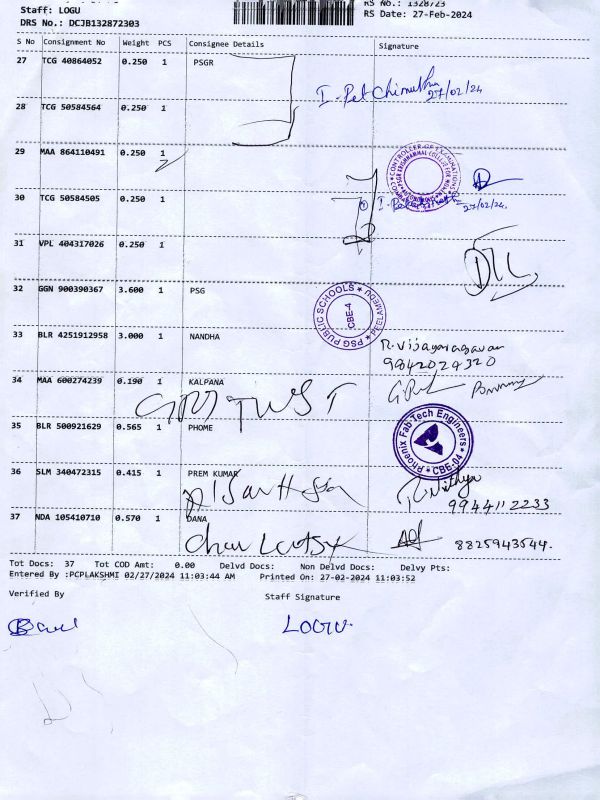 Staff: LOGU
DRS No.: DCJB132872303
RS No.: 1328723
RS Date: 27-Feb-2024
S No Consignment No Weight PCS Consignee Details Signature
27 TCG 40864052 0.250 1 PSGR
27/02/24
28 TCG 50584564 0.250 1
29 MAA 864110491 0.250 1
30 TCG 50584505 0.250 1
27/02/24.
31 VPL 404317026 0.250 1
32 GGN 900390367 3.600 1 PSG
PSG PUBLIC SCHOOLS PEELAMEDU
CBE-4
33 BLR 4251912958 3.000 1 NANDHA
R. Vijayaragavan
9842029320
34 MAA 600274239 0.190 1 KALPANA
35 BLR 500921629 0.565 1 PHOME
Phoenix Fab Tech Engineers CBE-04
36 SLM 340472315 0.415 1 PREM KUMAR
R. Nithya
9944112233
37 NDA 105410710 0.570 1 DANA
8825943544.
Tot Docs: 37 Tot COD Amt: 0.00 Delvd Docs: Non Delvd Docs: Delvy Pts:
Entered By :PCPLAKSHMI 02/27/2024 11:03:44 AM Printed On: 27-02-2024 11:03:52
Verified By Staff Signature
LOGU.